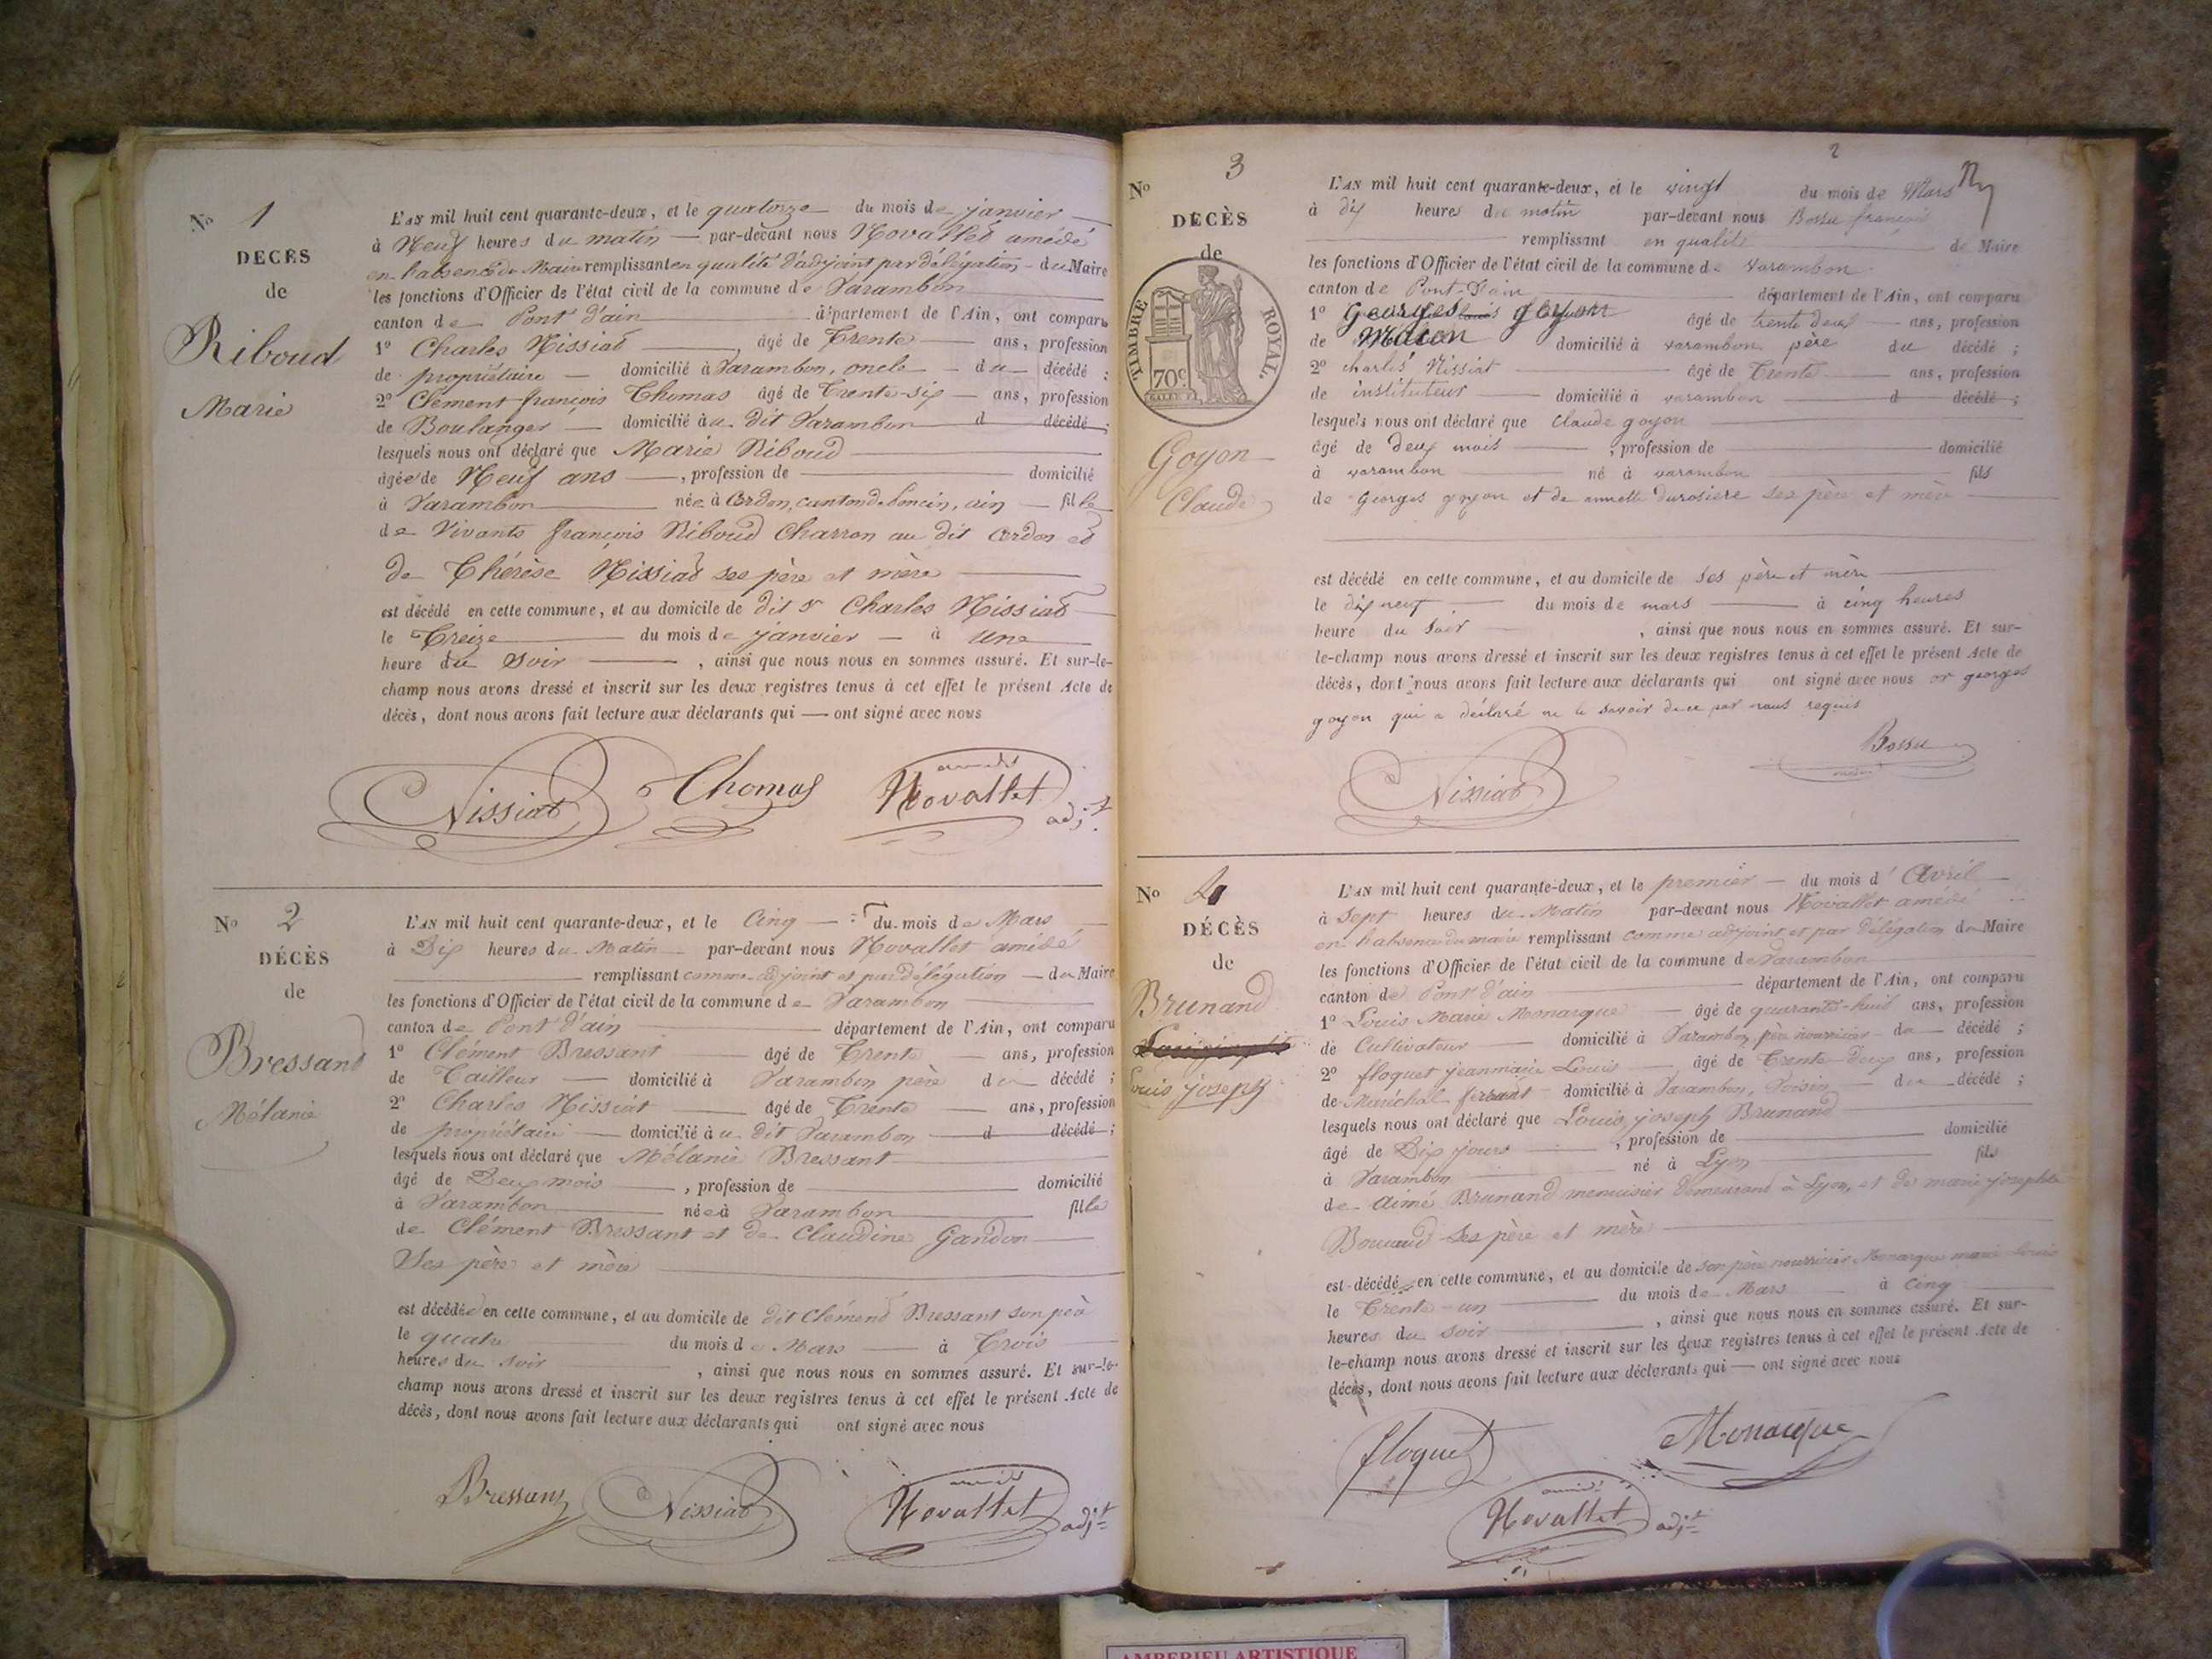 No 1
DECÈS
de
Riboud
Marie
L'AN mil huit cent quarante-deux, et le quatorze du mois de janvier
à Neuf heures du matin par-devant nous Novallet amédé
en l'absence du Maire remplissant en qualité d'adjoint par délégation du Maire
les fonctions d'Officier de l'état civil de la commune de Varambon
canton de Pont d'ain département de l'Ain, ont comparu
1° Charles Nissiat âgé de Trente ans, profession
de propriétaire domicilié à Varambon, oncle du décédé ;
2° Clément françois Thomas âgé de Trente-six ans, profession
de Boulanger domicilié au dit Varambon d décédé ;
lesquels nous ont déclaré que Marie Riboud
âgée de Neuf ans , profession de domicilié
à Varambon née à Cerdon, canton de Poncin, ain fille
de Vivants françois Riboud Charron au dit Cerdon et
de Thérèse Nissiat ses père et mère
est décédé en cette commune, et au domicile de dit sr Charles Nissiat
le Treize du mois de janvier à Une
heure du soir , ainsi que nous nous en sommes assuré. Et sur-le-
champ nous avons dressé et inscrit sur les deux registres tenus à cet effet le présent Acte de
décès, dont nous avons fait lecture aux déclarants qui ont signé avec nous
Nissiat Thomas amédé Novallet adjt
No 2
DÉCÈS
de
Bressand
Mélanie
L'AN mil huit cent quarante-deux, et le Cinq du mois de Mars
à Dix heures du Matin par-devant nous Novallet amédé
remplissant comme adjoint et par délégation du Maire
les fonctions d'Officier de l'état civil de la commune de Varambon
canton de Pont d'ain département de l'Ain, ont comparu
1° Clément Bressant âgé de Trente ans, profession
de Tailleur domicilié à Varambon père du décédé ;
2° Charles Nissiat âgé de Trente ans, profession
de propriétaire domicilié au dit Varambon d décédé ;
lesquels nous ont déclaré que Mélanie Bressant
âgé de Deux mois , profession de domicilié
à Varambon née à Varambon fille
de Clément Bressant et de Claudine Gandon
Ses père et mère
est décédée en cette commune, et au domicile de dit Clément Bressant son père
le quatre du mois de Mars à Trois
heures du soir , ainsi que nous nous en sommes assuré. Et sur-le-
champ nous avons dressé et inscrit sur les deux registres tenus à cet effet le présent Acte de
décès, dont nous avons fait lecture aux déclarants qui ont signé avec nous
Bressant Nissiat amédé Novallet adjt
2
No 3
DECÈS
de
TIMBRE ROYAL.
70c
Goyon
Claude
L'AN mil huit cent quarante-deux, et le vingt du mois de Mars
à dix heures du matin par-devant nous Bossu françois
remplissant en qualité de Maire
les fonctions d'Officier de l'état civil de la commune de varambon
canton de Pont-Dain département de l'Ain, ont comparu
1° Georges goyon âgé de trente deux ans, profession
de Macon domicilié à varambon père du décédé ;
2° charles Nissiat âgé de Trente ans, profession
de instituteur domicilié à varambon d décédé ;
lesquels nous ont déclaré que Claude goyon
âgé de deux mois , profession de domicilié
à varambon né à varambon fils
de Georges goyon et de annette Durosiere ses père et mère
est décédé en cette commune, et au domicile de ses père et mère
le dix neuf du mois de mars à cinq heures
heure du soir , ainsi que nous nous en sommes assuré. Et sur-
le-champ nous avons dressé et inscrit sur les deux registres tenus à cet effet le présent Acte de
décès, dont nous avons fait lecture aux déclarants qui ont signé avec nous georges
goyon qui a déclaré ne le savoir de ce par nous requis
Nissiat Bossu
No 4
DÉCÈS
de
Brunand
Louis joseph
L'AN mil huit cent quarante-deux, et le premier du mois d'Avril
à Sept heures du Matin par-devant nous Novallet amédé
en l'absence du maire remplissant comme adjoint et par délégation du Maire
les fonctions d'Officier de l'état civil de la commune de Varambon
canton de Pont d'ain département de l'Ain, ont comparu
1° Louis Marie Monarque âgé de quarante-huit ans, profession
de Cultivateur domicilié à Varambon, père nourricier du décédé ;
2° floquet jeanmarie Louis âgé de Trente-Deux ans, profession
de Maréchal ferrant domicilié à Varambon, Voisin du décédé ;
lesquels nous ont déclaré que Louis joseph Brunand
âgé de Dix jours , profession de domicilié
à Varambon né à Lyon fils
de Aimé Brunand menuisier demeurant à Lyon, et de marie josephte
ses père et mère
est décédé en cette commune, et au domicile de son père nourricier Monarque marie Louis
le Trente-un du mois de Mars à Cinq
heures du soir , ainsi que nous nous en sommes assuré. Et sur-
le-champ nous avons dressé et inscrit sur les deux registres tenus à cet effet le présent Acte de
décès, dont nous avons fait lecture aux déclarants qui ont signé avec nous
floquet Monarque
amédé Novallet adjt
AMBERIEU ARTISTIQUE